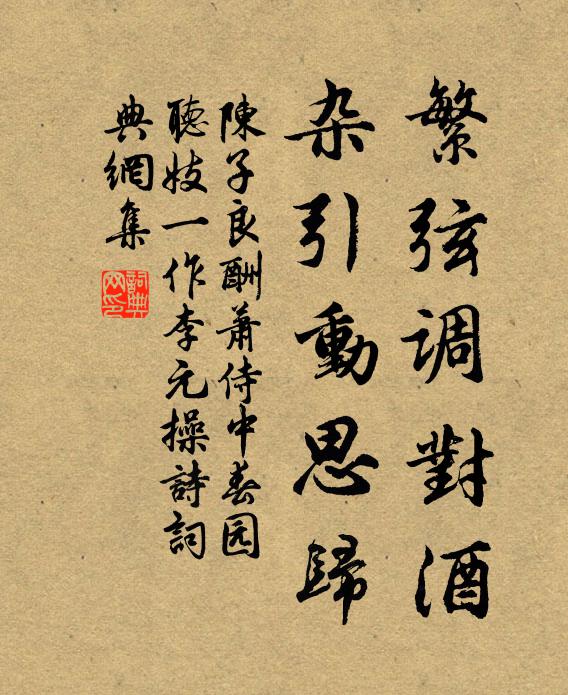 繁弦调對酒
杂引動思歸
陳子良酬萧侍中春园
聽妓一作李元操詩詞
典網集
詞典网印